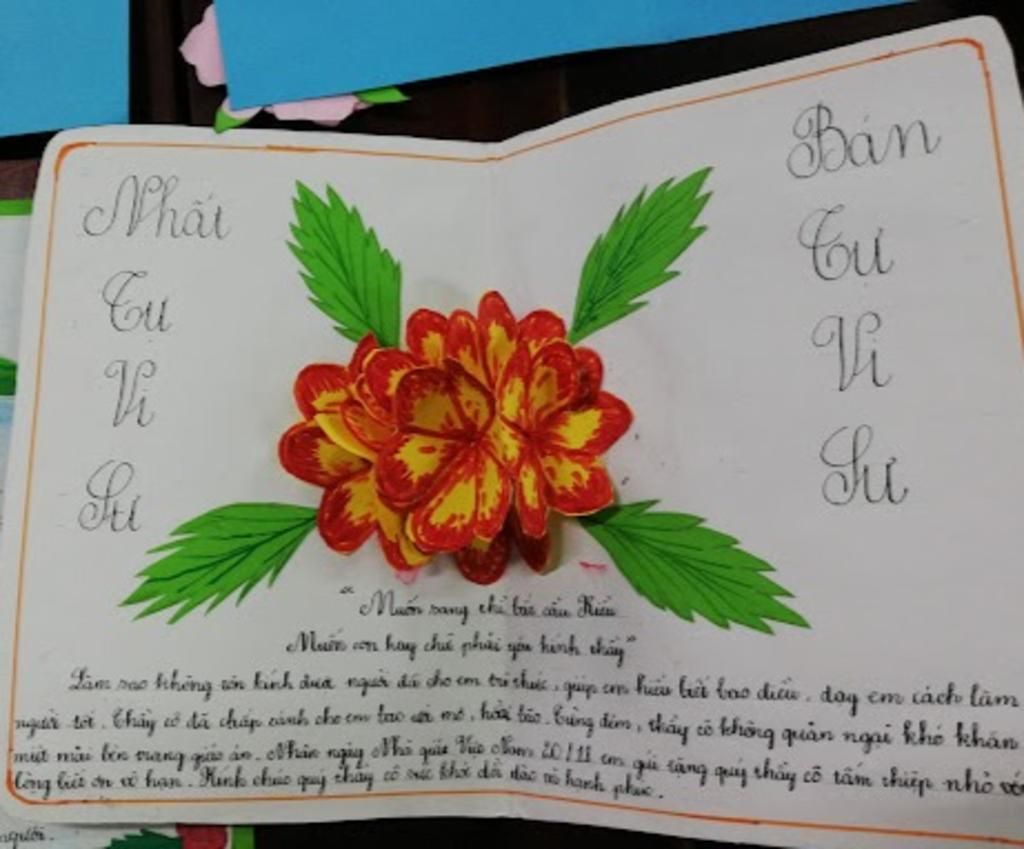 Nhất
Tự
Vi
Sư
Bán
Tự
Vi
Sư
“Muốn sang thì bắc cầu Kiều
Muốn con hay chữ phải yêu kính thầy”
Làm sao không tôn kính được người đã cho em tri thức, giúp em hiểu biết bao điều, dạy em cách làm
người tốt. Thầy cô đã chắp cánh cho em bao ước mơ, hoài bão. Từng đêm, thầy cô không quản ngại khó khăn
miệt mài bên trang giáo án. Nhân ngày Nhà giáo Việt Nam 20/11 em gửi tặng quý thầy cô tấm thiệp nhỏ với
lòng biết ơn vô hạn. Kính chúc quý thầy cô sức khỏe dồi dào và hạnh phúc.
người.